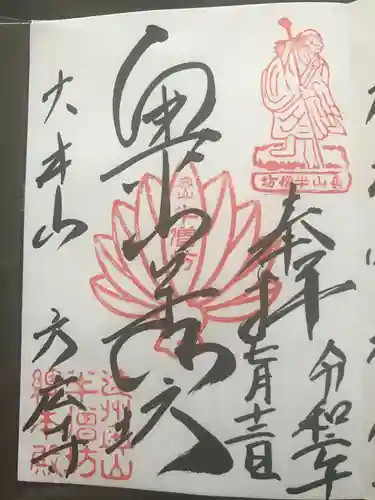 坊僧半山奥
奉拝
令和二年
七月十三日
奥山半僧坊
奥山半僧坊
大本山 方広寺
遠州奥山
半僧坊
総本殿